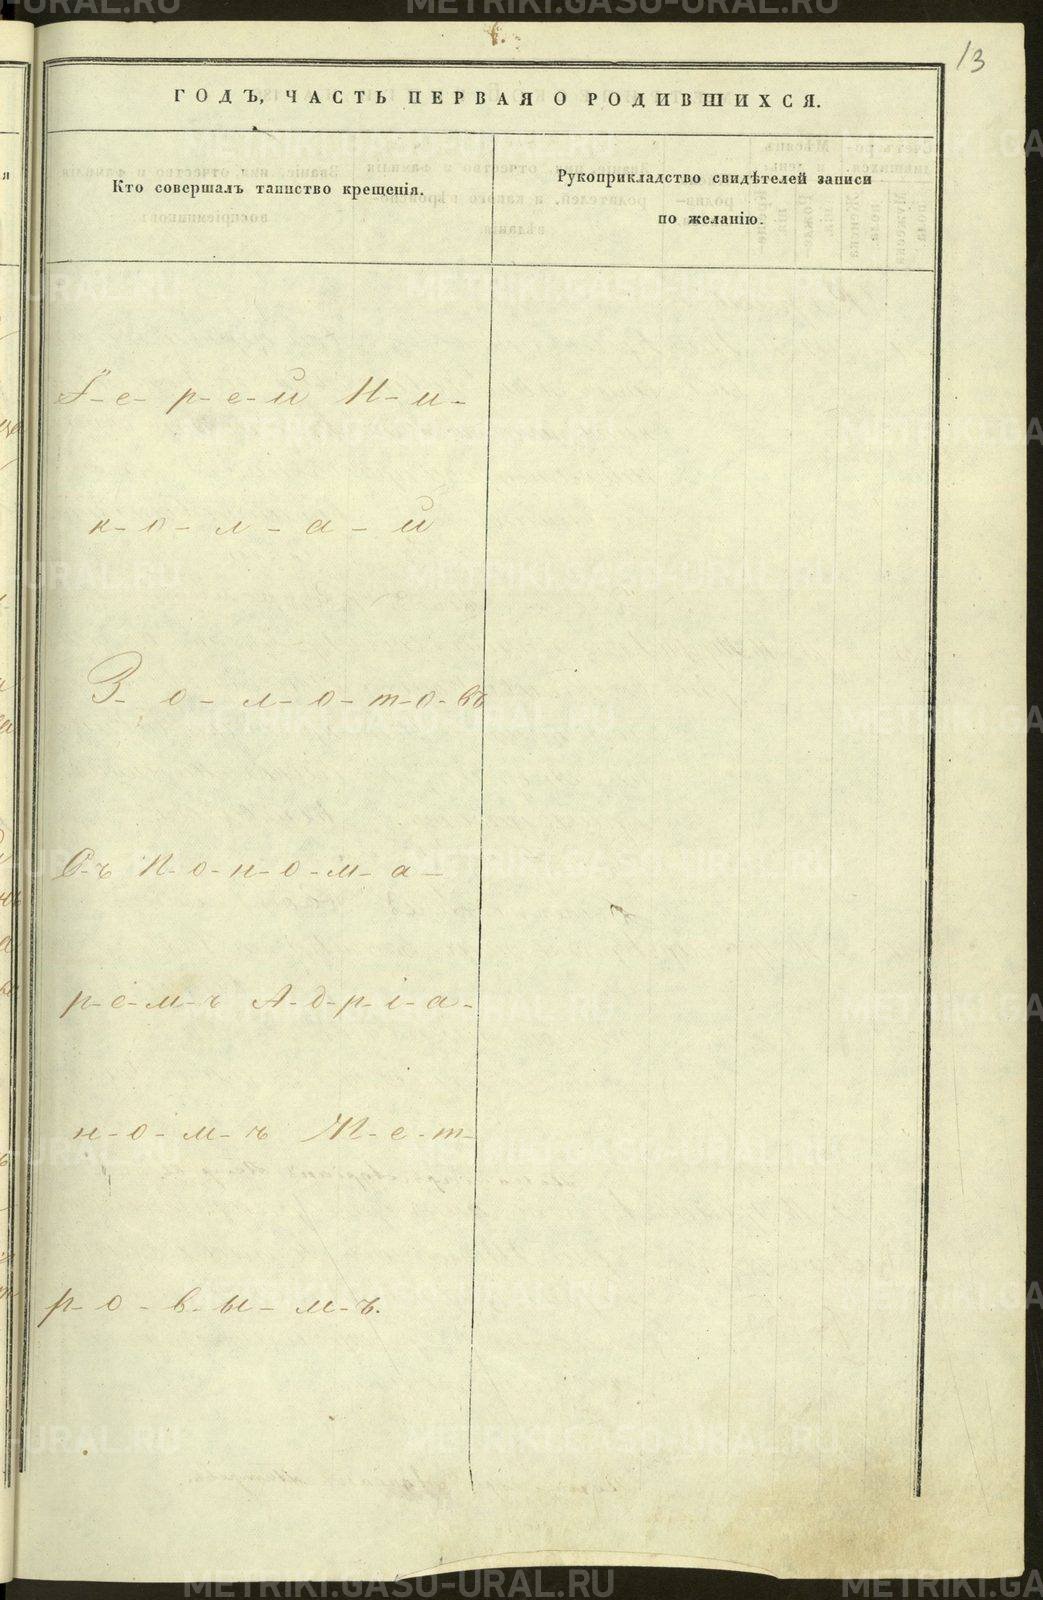 13
ГОДЪ, ЧАСТЬ ПЕРВАЯ О РОДИВШИХСЯ.
Кто совершалъ таинство крещенія.
Рукоприкладство свидѣтелей записи
по желанію.
І-е-р-е-й Н-и-
к-о-л-а-й
З-о-л-о-т-о-въ
С-ъ П-о-н-о-м-а-
р-е-м-ъ А-д-р-і-а-
н-о-м-ъ П-е-т-
р-о-в-ы-м-ъ.
METRIKI.GASO-URAL.RU